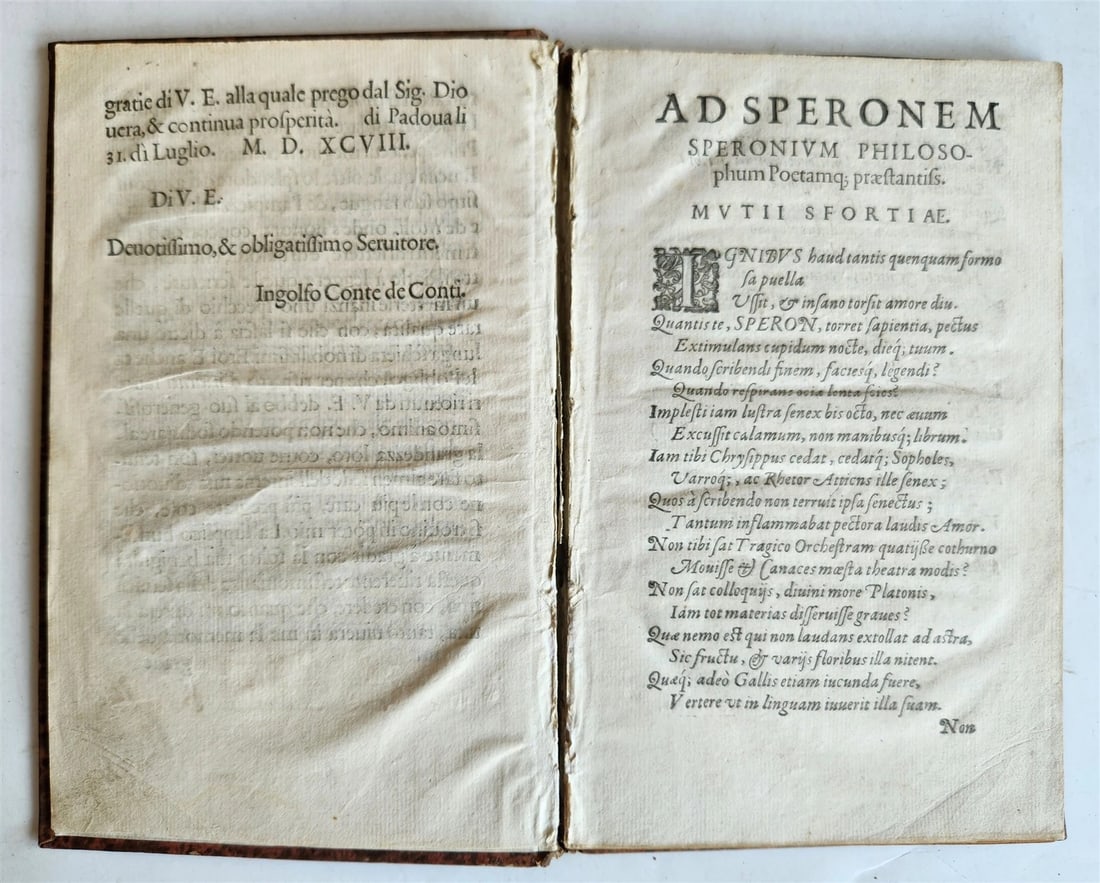 gratie di V. E. alla quale prego dal Sig. Dio
vera, & continua prosperità. di Padoua li
31. di Luglio. M. D. XCVIII.
Di V. E.
Deuotissimo, & obligatissimo Seruitore.
Ingolfo Conte de Conti.
AD SPERONEM
SPERONIVM PHILOSO-
phum Poetamq; præstantiss.
MVTII SFORTIAE.
IGNIBVS haud tantis quenquam formo
sa puella
Vssit, & insano torsit amore diu.
Quantis te, SPERON, torret sapientia, pectus
Extimulans cupidum nocte, dieq́; tuum.
Quando scribendi finem, faciesq́, legendi?
Quando respirans ocia lenta scies?
Implesti iam lustra senex bis octo, nec æuum
Excussit calamum, non manibusq́; librum.
Iam tibi Chrysippus cedat, cedatq́; Sopholes,
Varroq́;, ac Rhetor Atticus ille senex;
Quos à scribendo non terruit ipsa senectus;
Tantum inflammabat pectora laudis Amor.
Non tibi sat Tragico Orchestram quatijsse cothurno
Mouisse & Canaces mæsta theatra modis?
Non sat colloquijs, diuini more Platonis,
Iám tot materias disseruisse graues?
Quæ nemo est qui non laudans extollat ad astra,
Sic fructu, & varijs floribus illa nitent.
Quæq; adeò Gallis etiam iucunda fuere,
Vertere vt in linguam iuuerit illa suam.
Non